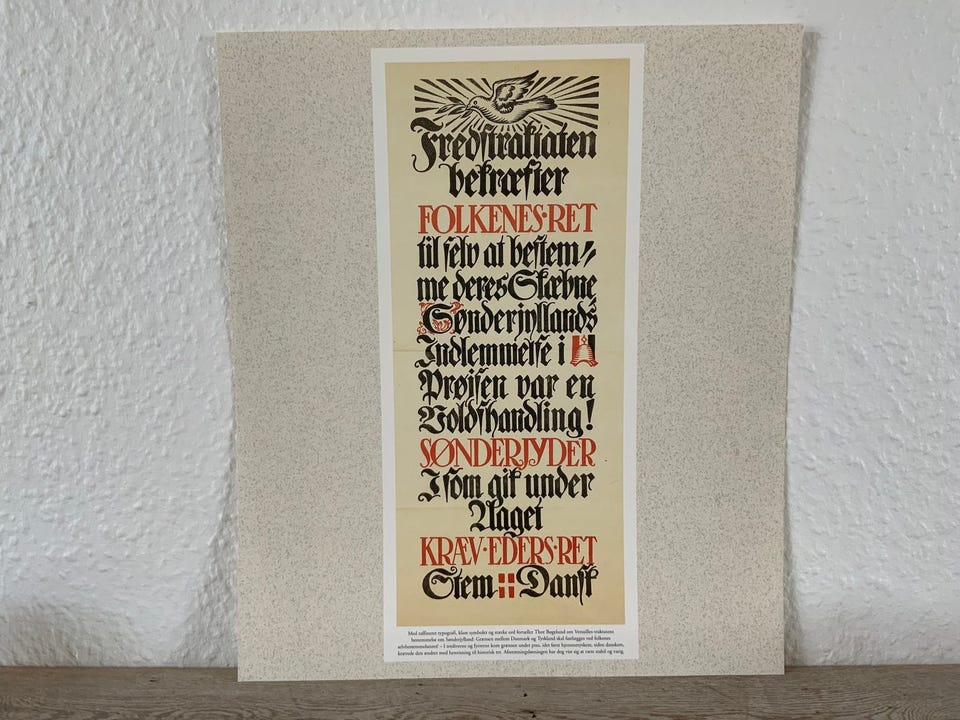 Fredstraktaten
bekræfter
FOLKENES·RET
til selv at bestem⸗
me deres Skæbne
Sønderjyllands
Indlemmelse i
Prøjsen var en
Voldshandling!
SØNDERJYDER
I som gik under
Aaget
KRÆV·EDERS·RET
Stem Dansk
Med raffineret typografi, klare symboler og stærke ord fortæller Thor Bøgelund om Versailles-traktatens
bestemmelse om Sønderjylland: Grænsen mellem Danmark og Tyskland skal fastlægges ved folkenes
selvbestemmelsesret! – I trediverne og fyrrerne kom grænsen under pres, idet først hjemmetyskere, siden danskere,
krævede den ændret med henvisning til historisk ret. Afstemningsløsningen har dog vist sig at være stabil og varig.